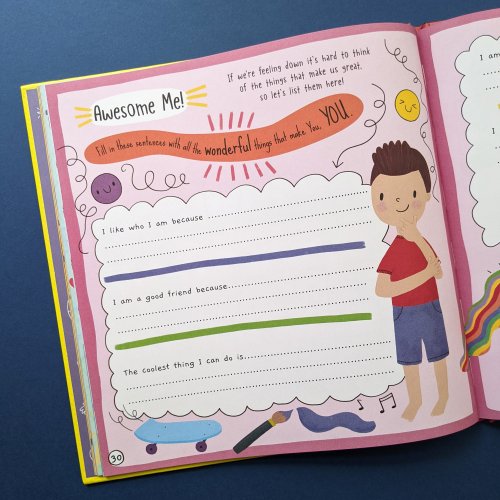 Awesome Me!
If we're feeling down it's hard to think
of the things that make us great,
so let's list them here!
Fill in these sentences with all the wonderful things that make You, YOU.
I like who I am because
I am a good friend because
The coolest thing I can do is
30
I am
I am